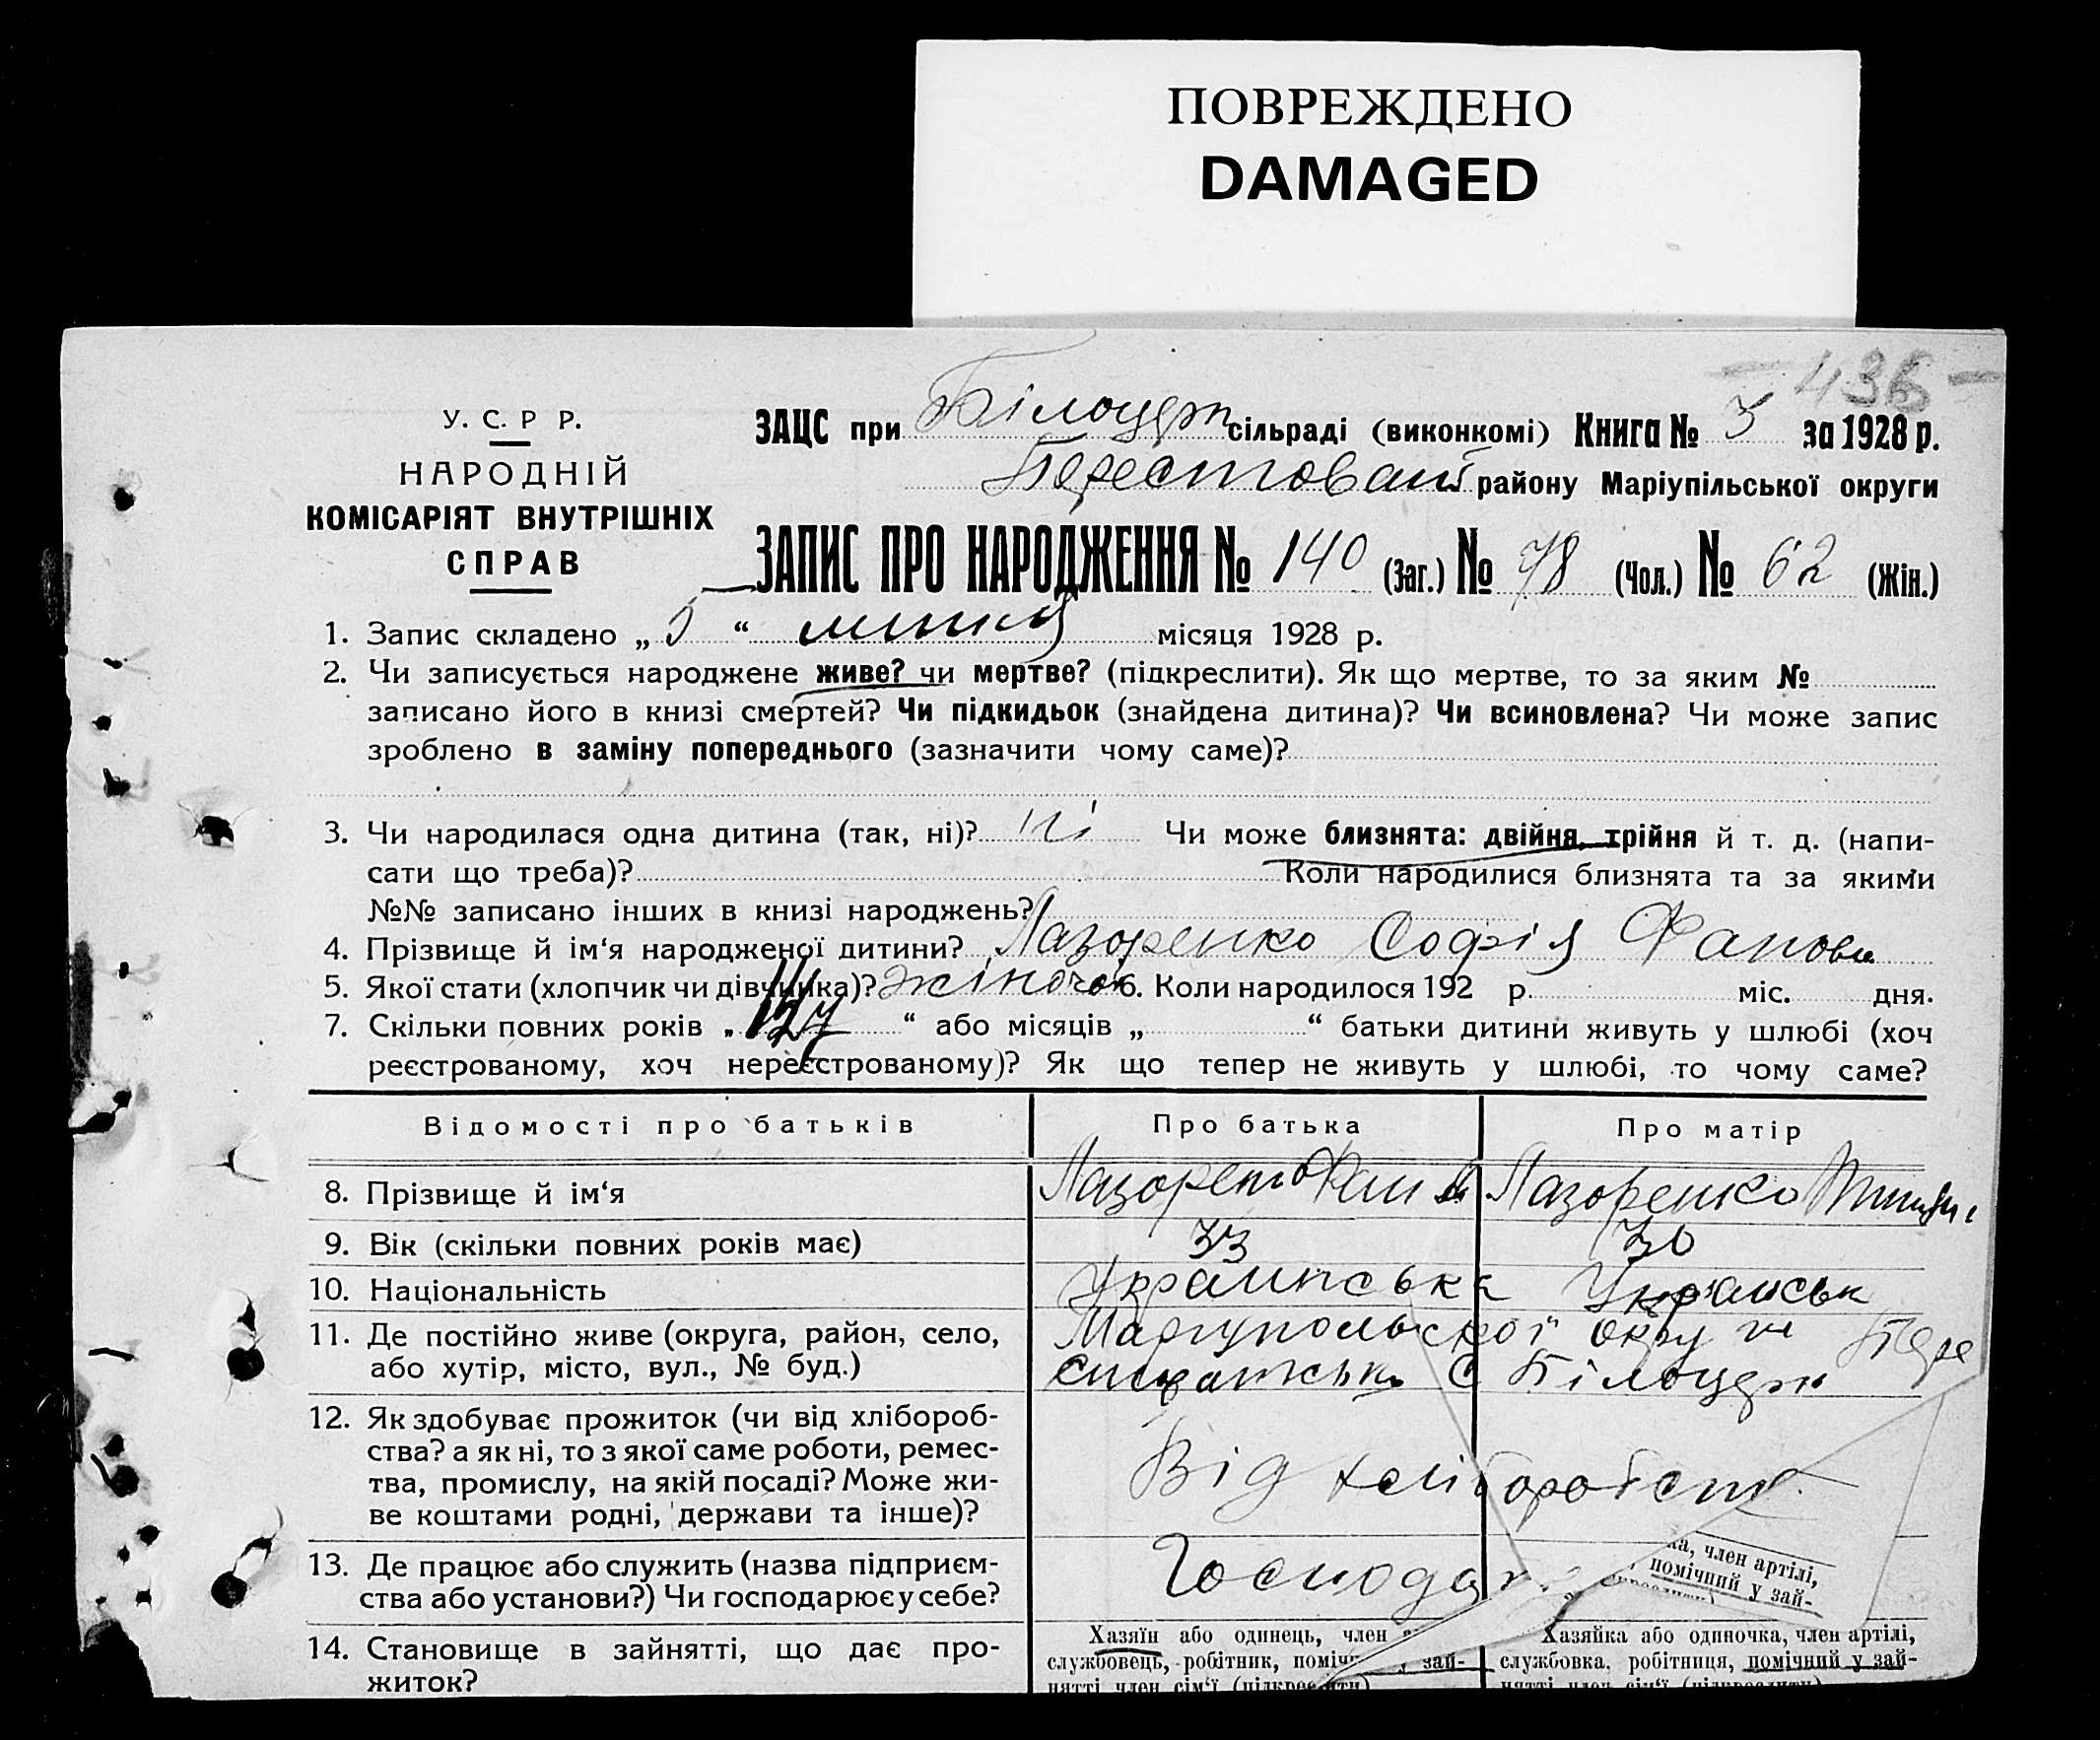 ПОВРЕЖДЕНО
DAMAGED
436
У. С. Р Р.
НАРОДНІЙ
КОМІСАРІЯТ ВНУТРІШНІХ
СПРАВ
ЗАЦС при Білоцерк сільраді (виконкомі) Книга № 3 за 1928 р.
району Маріупільської округи
ЗАПИС ПРО НАРОДЖЕННЯ № 140 (Заг.) № 78 (Чол.) № 62 (Жін.)
1. Запис складено „ 5 “ липня місяця 1928 р.
2. Чи записується народжене живе? чи мертве? (підкреслити). Як що мертве, то за яким №
записано його в книзі смертей? Чи підкидьок (знайдена дитина)? Чи всиновлена? Чи може запис
зроблено в заміну попереднього (зазначити чому саме)?
3. Чи народилася одна дитина (так, ні)? ні Чи може близнята: двійня, трійня й т. д. (напи-
сати що треба)? Коли народилися близнята та за якими
№№ записано інших в книзі народжень?
4. Прізвище й ім‘я народженої дитини? Лазоренко Софія
5. Якої стати (хлопчик чи дівчинка)? жіночої 6. Коли народилося 192 р. міс. дня.
7. Скільки повних років „ “ або місяців „ “ батьки дитини живуть у шлюбі (хоч
реєстрованому, хоч нереєстрованому)? Як що тепер не живуть у шлюбі, то чому саме?
Відомості про батьків Про батька Про матір
8. Прізвище й ім‘я Лазоренко Лазоренко
9. Вік (скільки повних років має) 33 30
10. Національність Українська Українськ
11. Де постійно живе (округа, район, село, Маріупольскої округи
або хутір, місто, вул., № буд.) с Білоцерк
12. Як здобуває прожиток (чи від хлібороб-
ства? а як ні, то з якої саме роботи, ремес-
тва, промислу, на якій посаді? Може жи- Від хліборобств
ве коштами родні, держави та інше)?
13. Де працює або служить (назва підприєм- Господа
ства або установи?) Чи господарює у себе?
ка, член артілі,
помічний у зай-
14. Становище в зайнятті, що дає про-
житок?
Хазяїн або одинець, член
службовець, робітник, поміч у зай-
нятті член сім‘ї (підкреслити)
Хазяйка або одиночка, член артілі,
службовка, робітниця, помічний у зай-
нятті член сім‘ї (підкреслити)